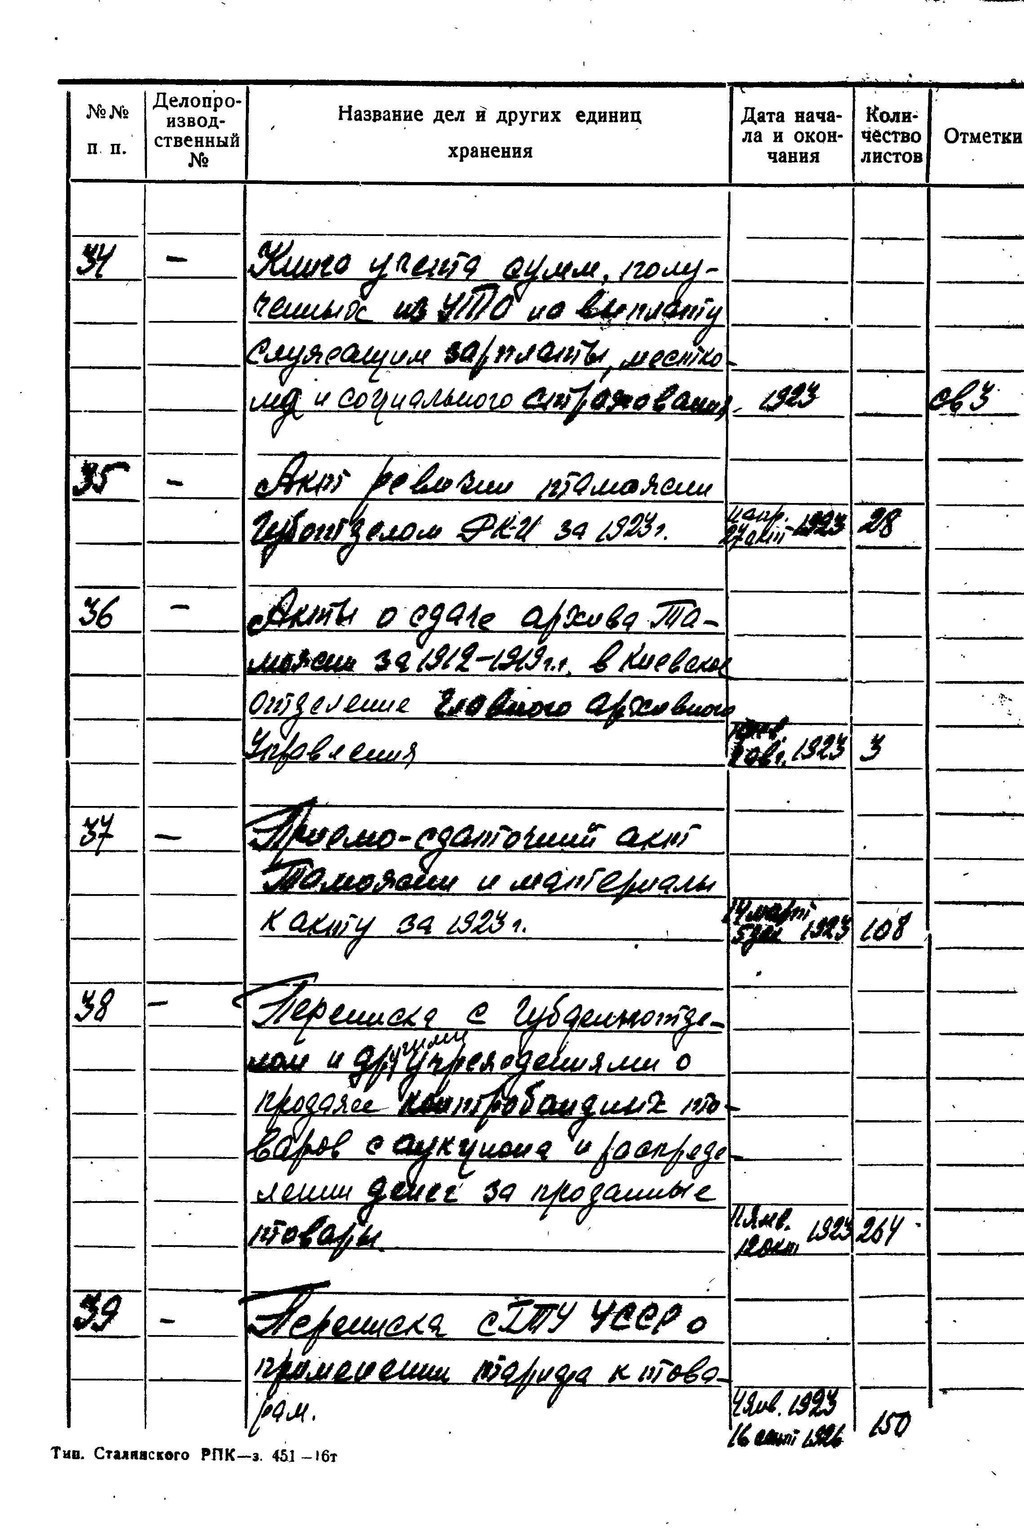 №№ п. п.
Делопро-
извод-
ственный
№
Название дел и других единиц
хранения
Дата нача-
ла и окон-
чания
Коли-
чество
листов
Отметки
34 — Книга учета сумм, полу-
ченных из УТО на выплату
служащим зарплаты, местко-
ма и социального страхования. 1923 св 3
35 — Акт ревизии таможни
Губотделом РКИ за 1923 г. 27 окт 1923 28
36 — Акты о сдаче архива Та-
можни за 1912–1919 г.г. в Киевское
отделение Главного Архивного
Управления 1923 3
37 — Приемо-сдаточний акт
Таможни и материалы
к акту за 1923 г. 14 март 5 дек 1923 108
38 — Переписка с
лом и другими учреждениями о
продаже контробандних то-
варов с аукциона и распреде-
лении денег за проданные
товары. 11 янв. 12 окт 1923 264
39 — Переписка с ГТУ УССР о
применении тарифа к това-
рам. 4 янв. 1923
16 сент 1926 150
Тип. Сталинского РПК—з. 451—16т